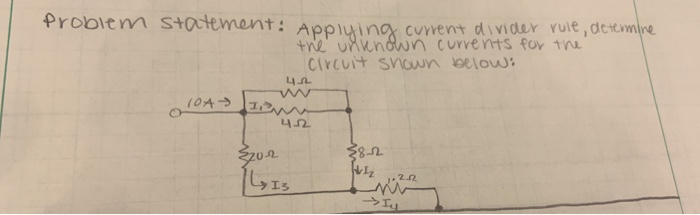 Problem statement: Applying current divider rule, determine
the unknown currents for the
circuit shown below:
4Ω
10A →
I₁→
4Ω
20Ω
8Ω
↓I₂
1.2Ω
↳ I3
→ I4